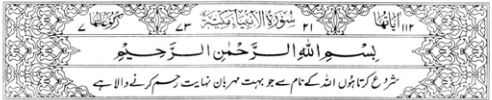 ۱۱۲ اٰیاتھا ۲۱ سُوْرَۃُ الْاَنْۢبِیَآءِ مَکِّیَّۃٌ ۷۳ رکوعاتھا ۷
بِسْمِ اللهِ الرَّحْمٰنِ الرَّحِيْمِ
شروع کرتا ہوں اللہ کے نام سے جو بہت مہربان نہایت رحم کرنے والا ہے